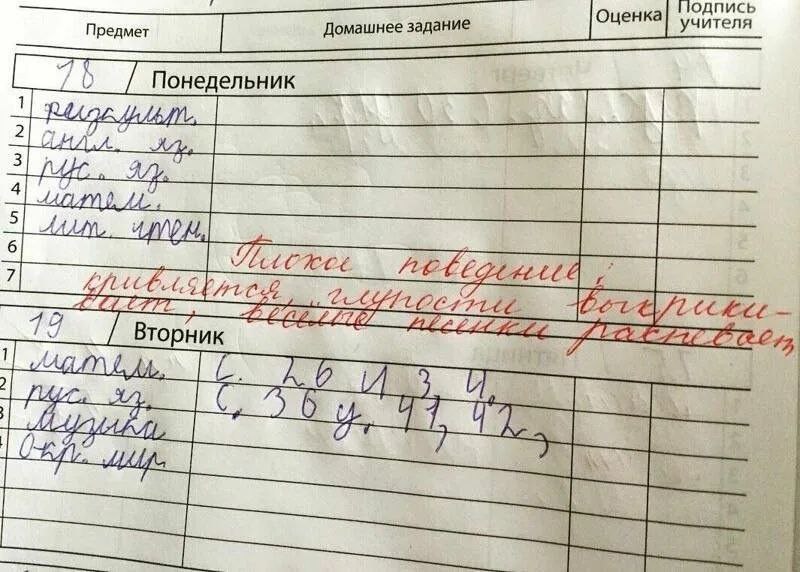 Предмет Домашнее задание Оценка Подпись учителя
18 Понедельник
1 физкульт.
2 англ. яз.
3 рус. яз.
4 матем.
5 лит. чтен.
6 Плохое поведение:
7 кривляется, глупости выкрики-
вает, весёлые песенки распевает
19 Вторник
1 матем. С. 26 И 3, 4.
2 рус. яз. С. 36 у. 41, 42,
3 музыка
4 окр. мир